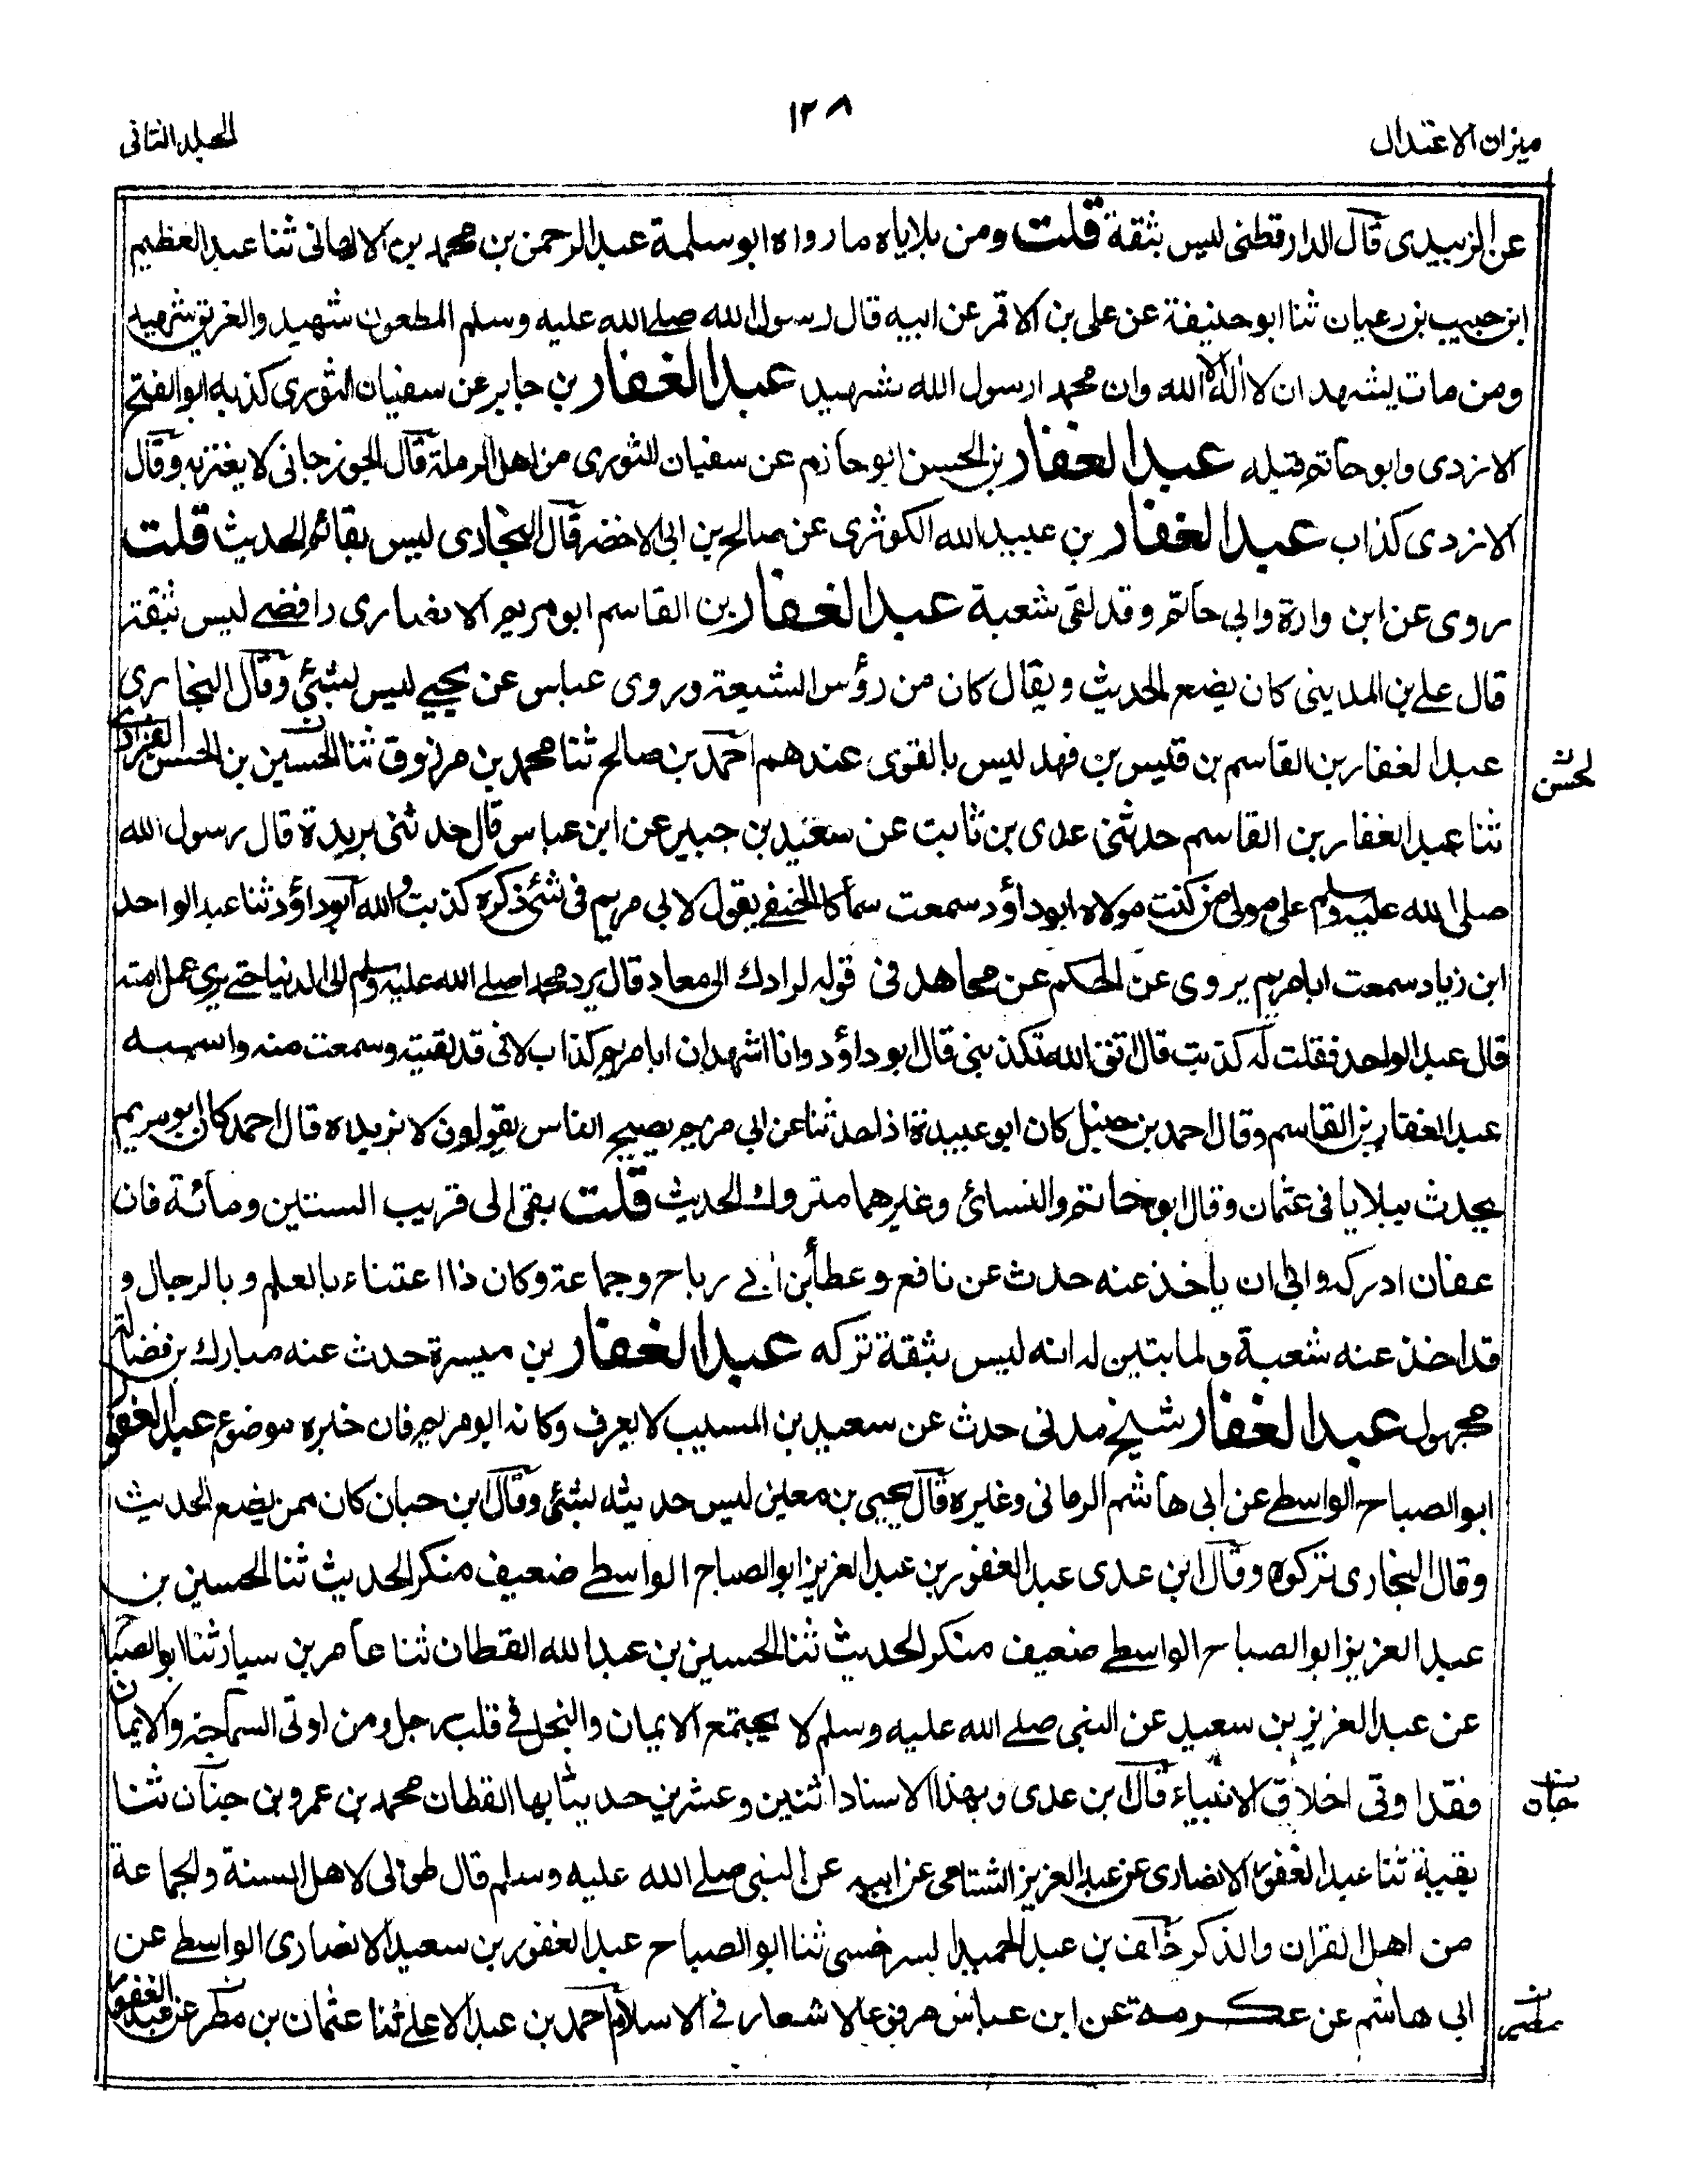 ميزان الاعتدال
١٢٨
المجلد الثانى
عن الزبيدى قال الدارقطنى ليس بثقة قلت ومن بلاياه ما رواه ابو سلمة عبد الرحمن بن محمد بن الالهانى ثنا عبد العظيم
ابن حبيب بن رعبان ثنا ابو حنيفة عن على بن الاقمر عن ابيه قال رسول الله صلے الله عليه وسلم المطعون شهيد والغريق شهيد
ومن مات يشهد ان لا اله الا الله وان محمدا رسول الله شهيد عبد الغفار بن جابر عن سفيان الثورى كذبه ابو الفتح
الازدى وابو حاتم قبله عبد الغفار بن الحسن ابو حازم عن سفيان الثورى من اهل الرملة قال الجوزجانى لا يغتر به وقال
الازدى كذاب عبد الغفار بن عبيد الله الكوثرى عن صالح بن ابى الاخضر قال البخارى ليس بقائم الحديث قلت
روى عن ابن وارة وابى حاتم وقد لقى شعبة عبد الغفار بن القاسم ابو مريم الانصارى رافضے ليس بثقة
قال علے بن المدينى كان يضع الحديث ويقال كان من رؤس الشيعة وروى عباس عن يحيے ليس بشئ وقال البخارى
عبد الغفار بن القاسم بن قيس بن فهد ليس بالقوى عندهم احمد بن صالح ثنا محمد بن مرزوق ثنا الحسين بن الحسن الفزارى
الحسن
ثنا عبد الغفار بن القاسم حدثنى عدى بن ثابت عن سعيد بن جبير عن ابن عباس قال حدثنى بريدة قال رسول الله
صلى الله عليه وسلم على مولى من كنت مولاه ابو داؤد سمعت سماكا الحنفے يقول لابى مريم فى شئ ذكره كذبت والله ابو داؤد ثنا عبد الواحد
ابن زياد سمعت ابا مريم يروى عن الحكم عن مجاهد فى قوله لرادك الى معاد قال يرد محمدا صلے الله عليه وسلم الى الدنيا حتے يرى عمل امته
قال عبد الواحد فقلت له كذبت قال اتق الله تكذبنى قال ابو داؤد وانا اشهد ان ابا مريم كذاب لانى قد لقيته وسمعت منه واسمه
عبد الغفار بن القاسم وقال احمد بن حنبل كان ابو عبيدة اذا حدثنا عن ابى مريم يصيح الناس يقولون لا نريده قال احمد كان ابو مريم
يحدث ببلايا فى عثمان وقال ابو حاتم والنسائى وغيرهما متروك الحديث قلت بقى الى قريب الستين ومائة فان
عفان ادركه وابى ان ياخذ عنه حدث عن نافع وعطاء بن ابے رباح وجماعة وكان ذا اعتناء بالعلم وبالرجال و
قد اخذ عنه شعبة ولما تبين له انه ليس بثقة تركه عبد الغفار بن ميسرة حدث عنه مبارك بن فضالة
مجهول عبد الغفار شيخ مدنى حدث عن سعيد بن المسيب لا يعرف وكانه ابو مريم فان خبره موضوع عبد الغفور
ابو الصباح الواسطے عن ابى هاشم الرمانى وغيره قال يحيى بن معين ليس حديثه بشئ وقال ابن حبان كان ممن يضع الحديث
وقال البخارى تركوه وقال ابن عدى عبد الغفور بن عبد العزيز ابو الصباح الواسطے ضعيف منكر الحديث ثنا الحسين بن
عبد العزيز ابو الصباح الواسطے ضعيف منكر الحديث ثنا الحسين بن عبد الله القطان ثنا عامر بن سيار ثنا ابو الصباح
عن عبد العزيز بن سعيد عن النبى صلے الله عليه وسلم لا يجتمع الايمان والبخل فے قلب رجل ومن اوتى السماحة والايمان
فقد اوتى اخلاق الانبياء قال ابن عدى وبهذا الاسناد اثنين وعشرين حديثا بها القطان محمد بن عمرو بن حنان ثنا
حبان
بقية ثنا عبد الغفور الانصارى عن عبد العزيز الشامى عن ابيه عن النبى صلے الله عليه وسلم قال طوبى لاهل السنة والجماعة
من اهل القران والذكر خلف بن عبد الحميد السرخسى ثنا ابو الصباح عبد الغفور بن سعيد الانصارى الواسطے عن
ابى هاشم عن عكرمة عن ابن عباس مرفوعا لا شعار فے الاسلام احمد بن عبد الاعلے ثنا عثمان بن مطر عن عبد الغفور